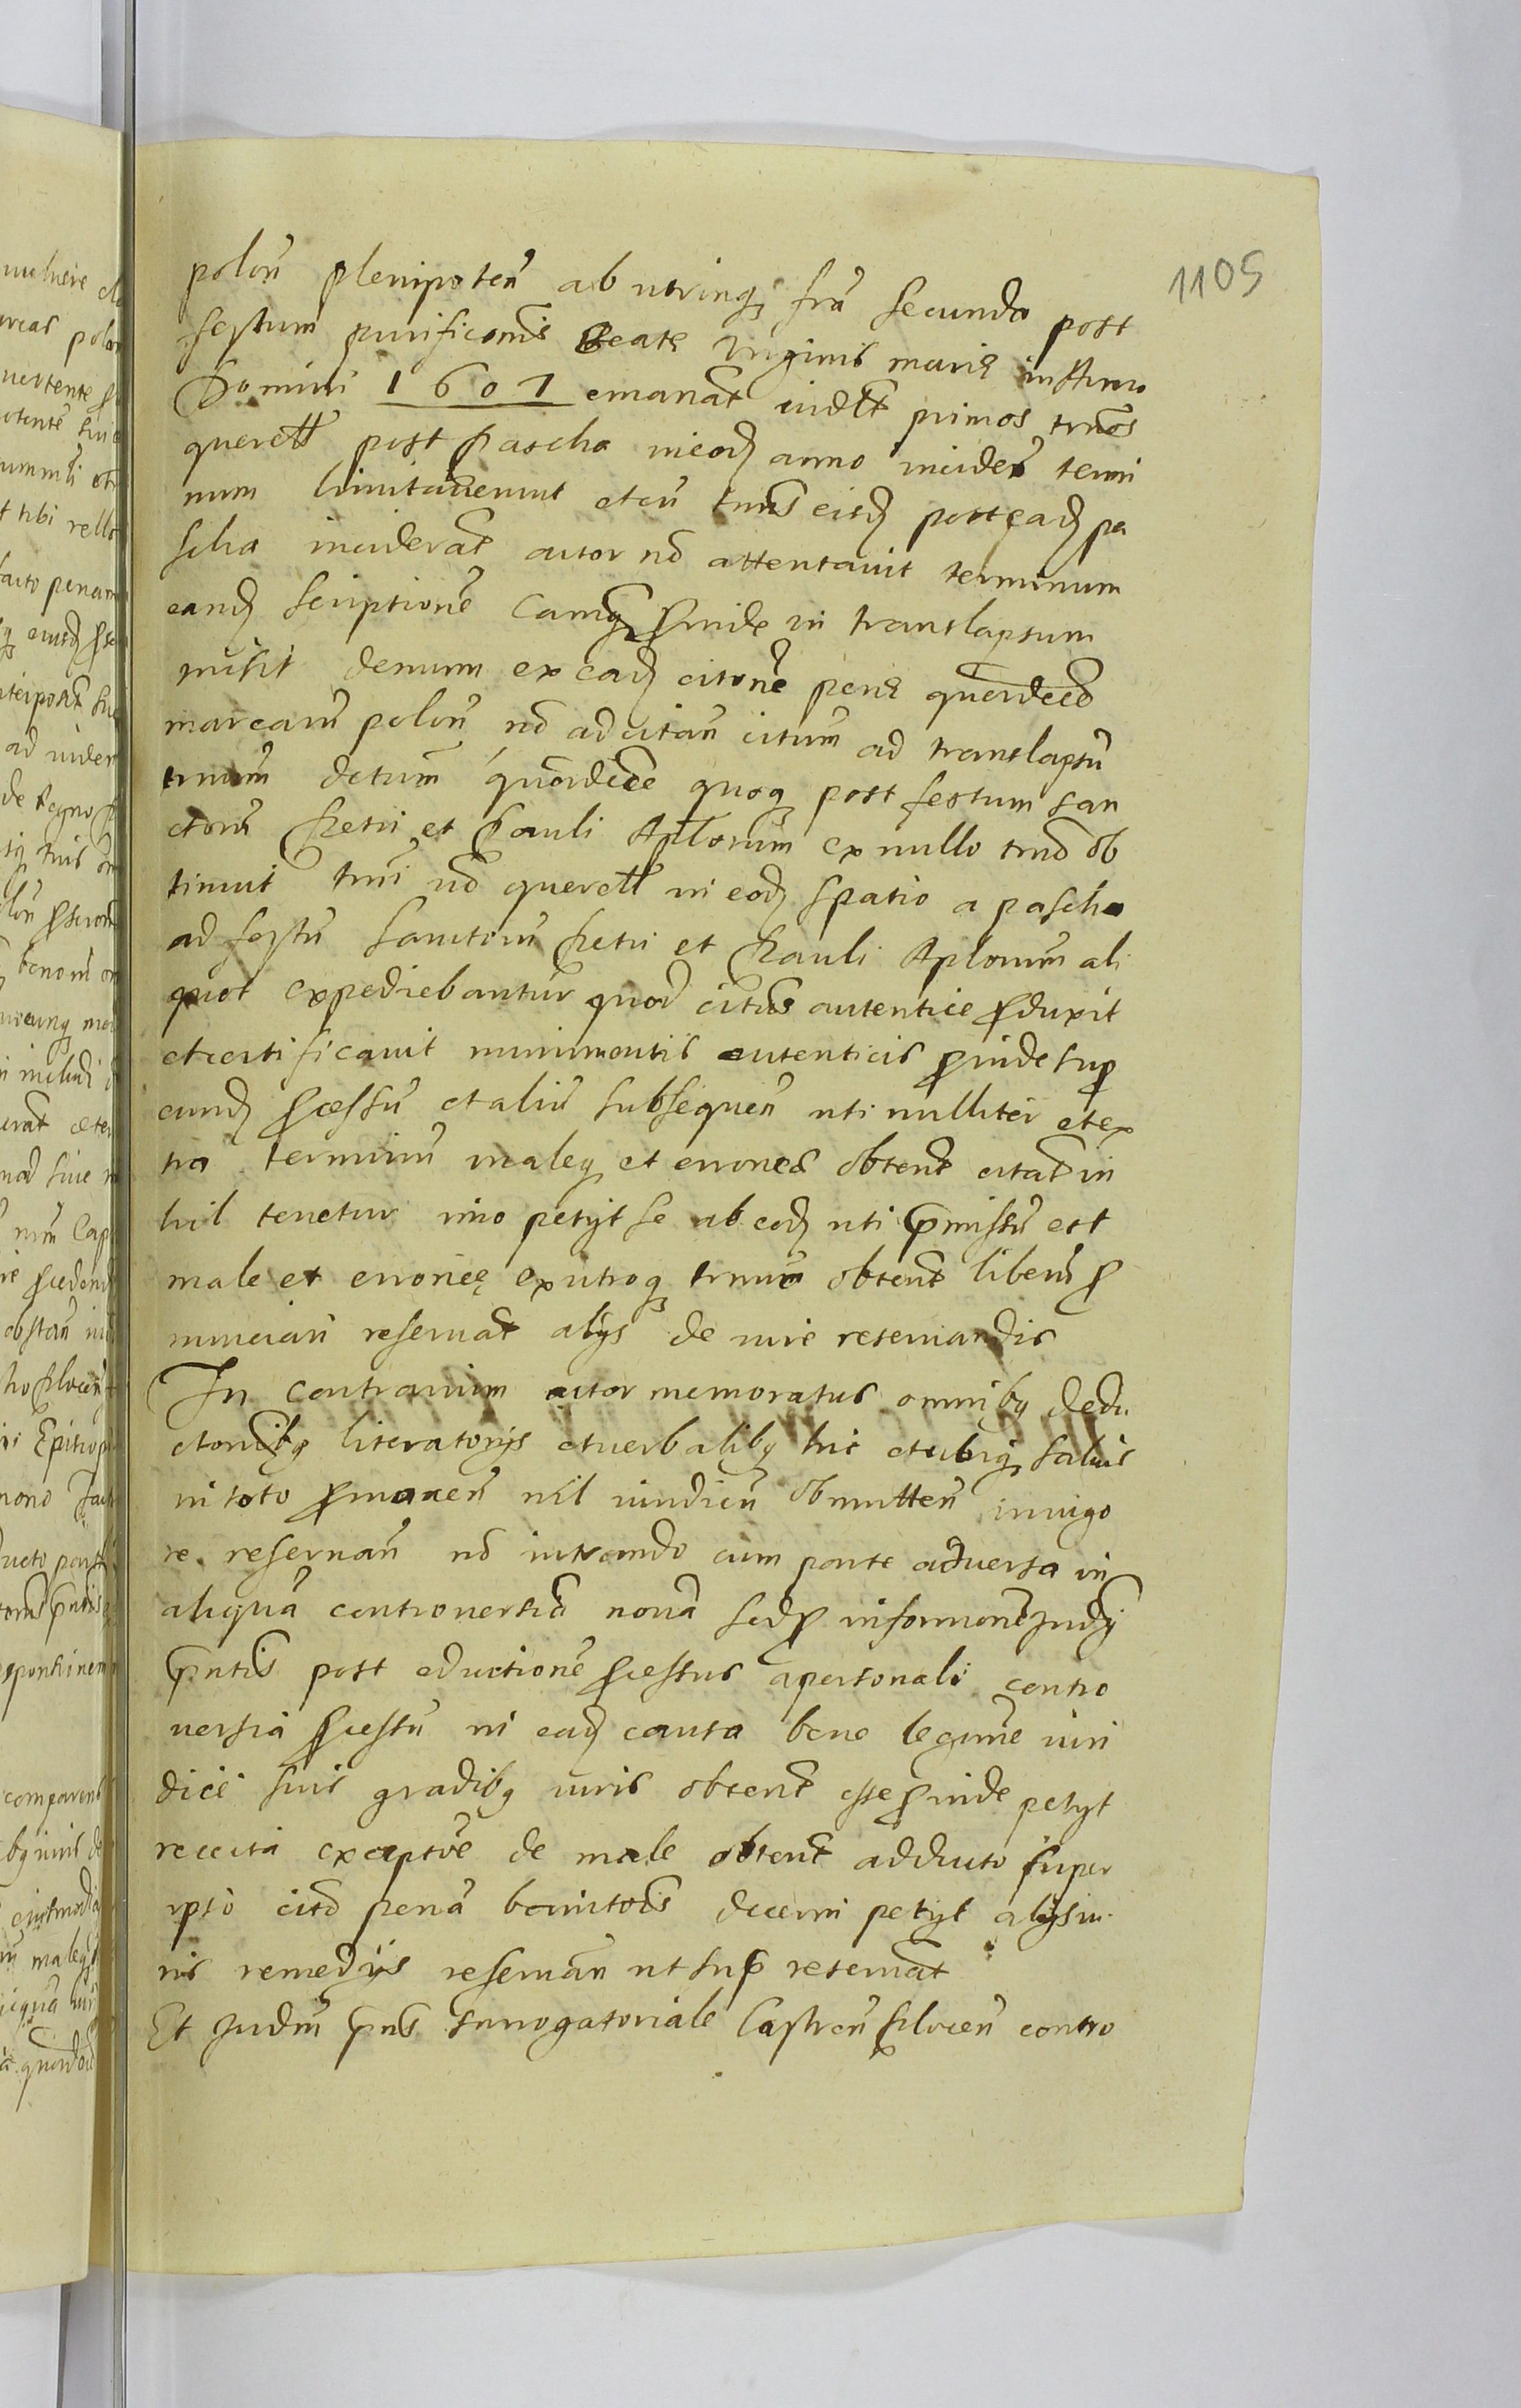 1105
polon̄ plenipoten̄ ab utrinq̨ fr̄a secunda post
festum purificōnis Beatę Virginis marię in Anno
Domini 1601 emanat̄ iudēt primos tr̄nos
querell post Pascha in eod̨ anno inciden̄ termi
num limitaverunt et cū tr̄nis eisd̨ post ead̨ pa
scha inciderāt actor nō attentavit terminum
eand̨ scriptionē Camq̨ proinde in translapsum
misit demum ex ead̨ citōne penę quordecē
marcarū polon̄ nō ad citan̄ citum̄ ad translapsū
tr̄num̄ detum̄ quordece quoq̨ post festum san
ctorū Petri et Pauli Aplorum ex nullo tr̄no ob
tinuit tr̄ni nō querell in eod̨ spatio a pascha
ad festū Sanctorū Petri et Pauli Aplorum̄ ali
quot expediebantur quod cit̄us autentice produxit
et certificavit munimentis autenticis proinde sup̱
eund̨ processū et aliū subsequen̄ uti nulliter et ex
tra terminū maleq̨ et erronee obtent̄ citat̄ in
hil tenetur imo petyt se ab eod̨ uti p̄missū est
male et erronee ex utroq̨ tr̄nino obtent̄ liberū pro
nunciari reservat̄ alÿs de iure reservandis
In contrarium actor memoratus omnibq̨ dedu
ctonibq̨ literatorÿs et verbalibq̨ hic et ubiq̨ salvis
in toto p̱manen̄ nil iuridicū obmitten̄ in vigo
re reservan̄ nō intrando cum parte adversa in
aliquā controversiā novā sed pro informonē Judÿ
p̄ntis post eductionē processus a personali contro
versia processū in ead̨ causa bene legitime iuri
dice suis gradibq̨ iuris obtent̄ esse proinde petyt
reiecta exceptōe de male obtent̄ adducto super
ipso cito penā banitōis decerni petyt alÿs iu
ris remedÿs reservan̄ ut sup̱ reservat̄
Et Judm̄ p̄ns surrogatoriale Castren̄ Plocen̄ contro